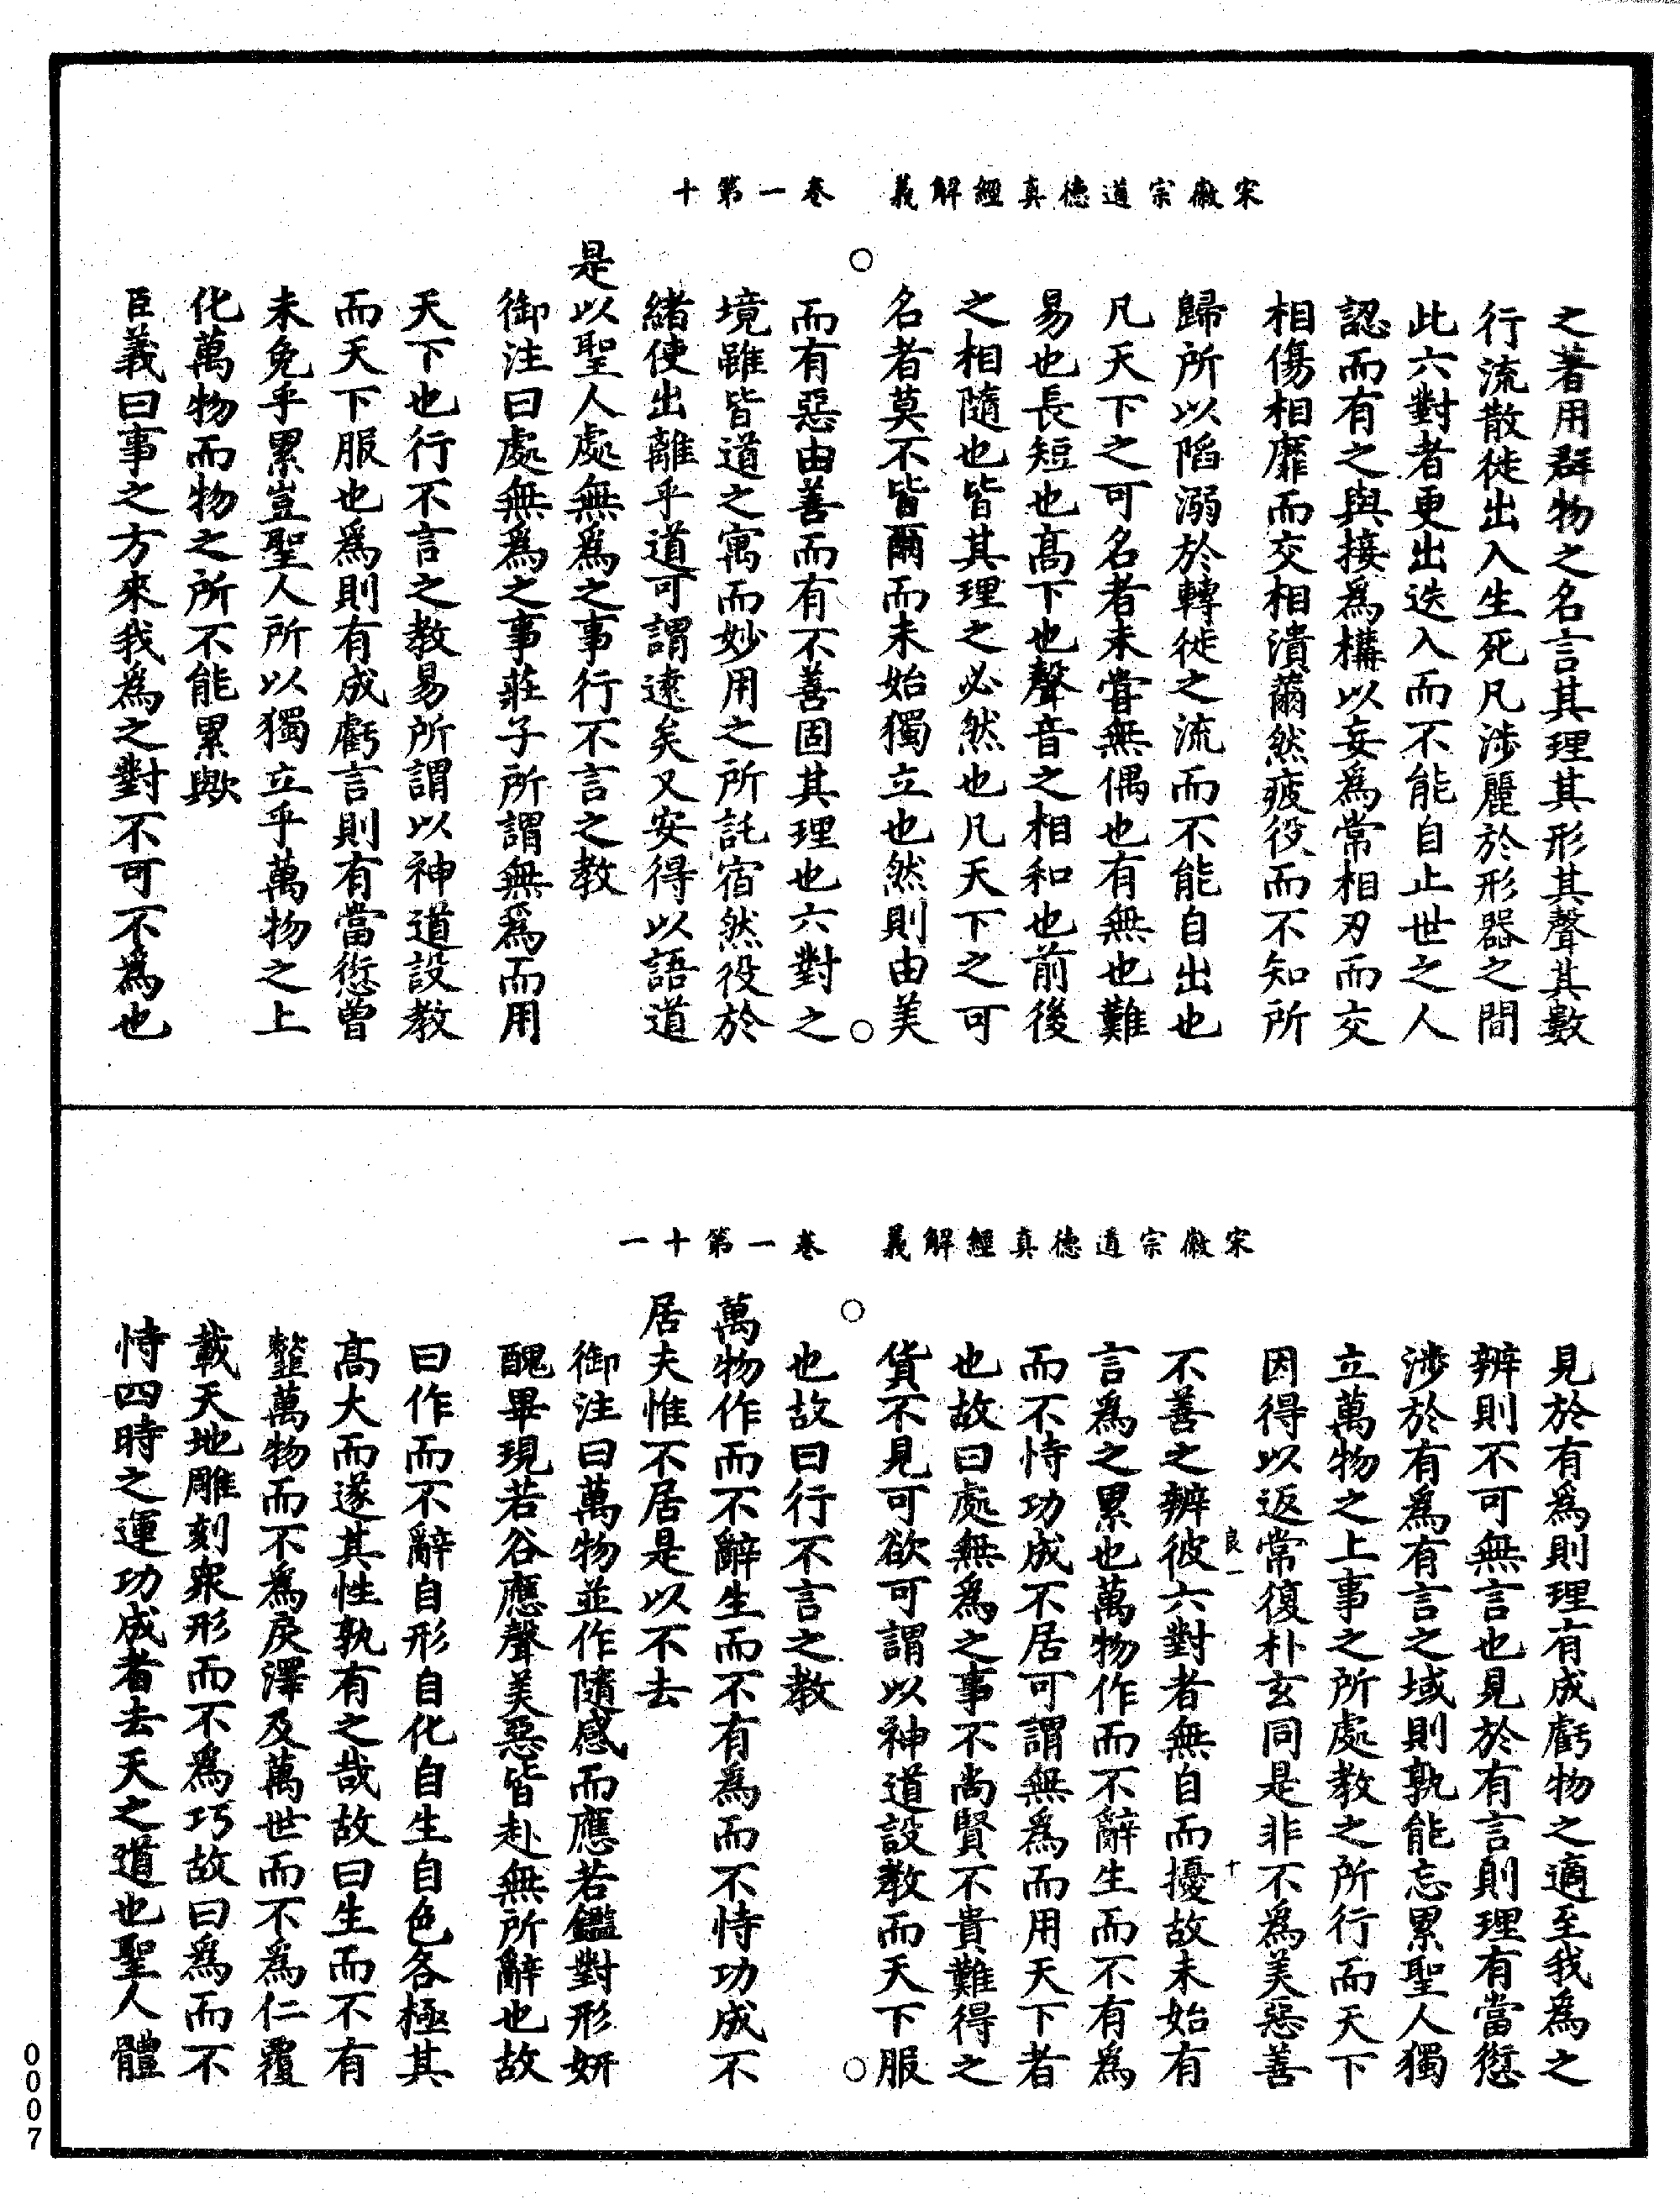 宋徽宗道德真經解義　卷一第十
之著用群物之名言其理其形其聲其數
行流散徙出入生死凡涉麗於形器之間
此六對者更出迭入而不能自止世之人
認而有之與接為構以妄為常相刃而交
相傷相靡而交相潰薾然疲役而不知所
歸所以陷溺於轉徙之流而不能自出也
凡天下之可名者未嘗無偶也有無也難
易也長短也高下也聲音之相和也前後
之相隨也皆其理之必然也凡天下之可
名者莫不皆爾而未始獨立也然則由美
○
○
而有惡由善而有不善固其理也六對之
境雖皆道之寓而妙用之所託宿然役於
緒使出離乎道可謂遠矣又安得以語道
是以聖人處無為之事行不言之教
御注曰處無為之事莊子所謂無為而用
天下也行不言之教易所謂以神道設教
而天下服也為則有成虧言則有當愆曾
未免乎累豈聖人所以獨立乎萬物之上
化萬物而物之所不能累歟
臣義曰事之方來我為之對不可不為也
宋徽宗道德真經解義　卷一第十一
見於有為則理有成虧物之適至我為之
辨則不可無言也見於有言則理有當愆
涉於有為有言之域則孰能忘累聖人獨
立萬物之上事之所處教之所行而天下
因得以返常復朴玄同是非不為美惡善
良一
十
不善之辨彼六對者無自而擾故未始有
言為之累也萬物作而不辭生而不有為
而不恃功成不居可謂無為而用天下者
也故曰處無為之事不尚賢不貴難得之
貨不見可欲可謂以神道設教而天下服
○
○
也故曰行不言之教
萬物作而不辭生而不有為而不恃功成不
居夫惟不居是以不去
御注曰萬物並作隨感而應若鑑對形妍
醜畢現若谷應聲美惡皆赴無所辭也故
曰作而不辭自形自化自生自色各極其
高大而遂其性孰有之哉故曰生而不有
虀萬物而不為戾澤及萬世而不為仁覆
載天地雕刻衆形而不為巧故曰為而不
恃四時之運功成者去天之道也聖人體
0007